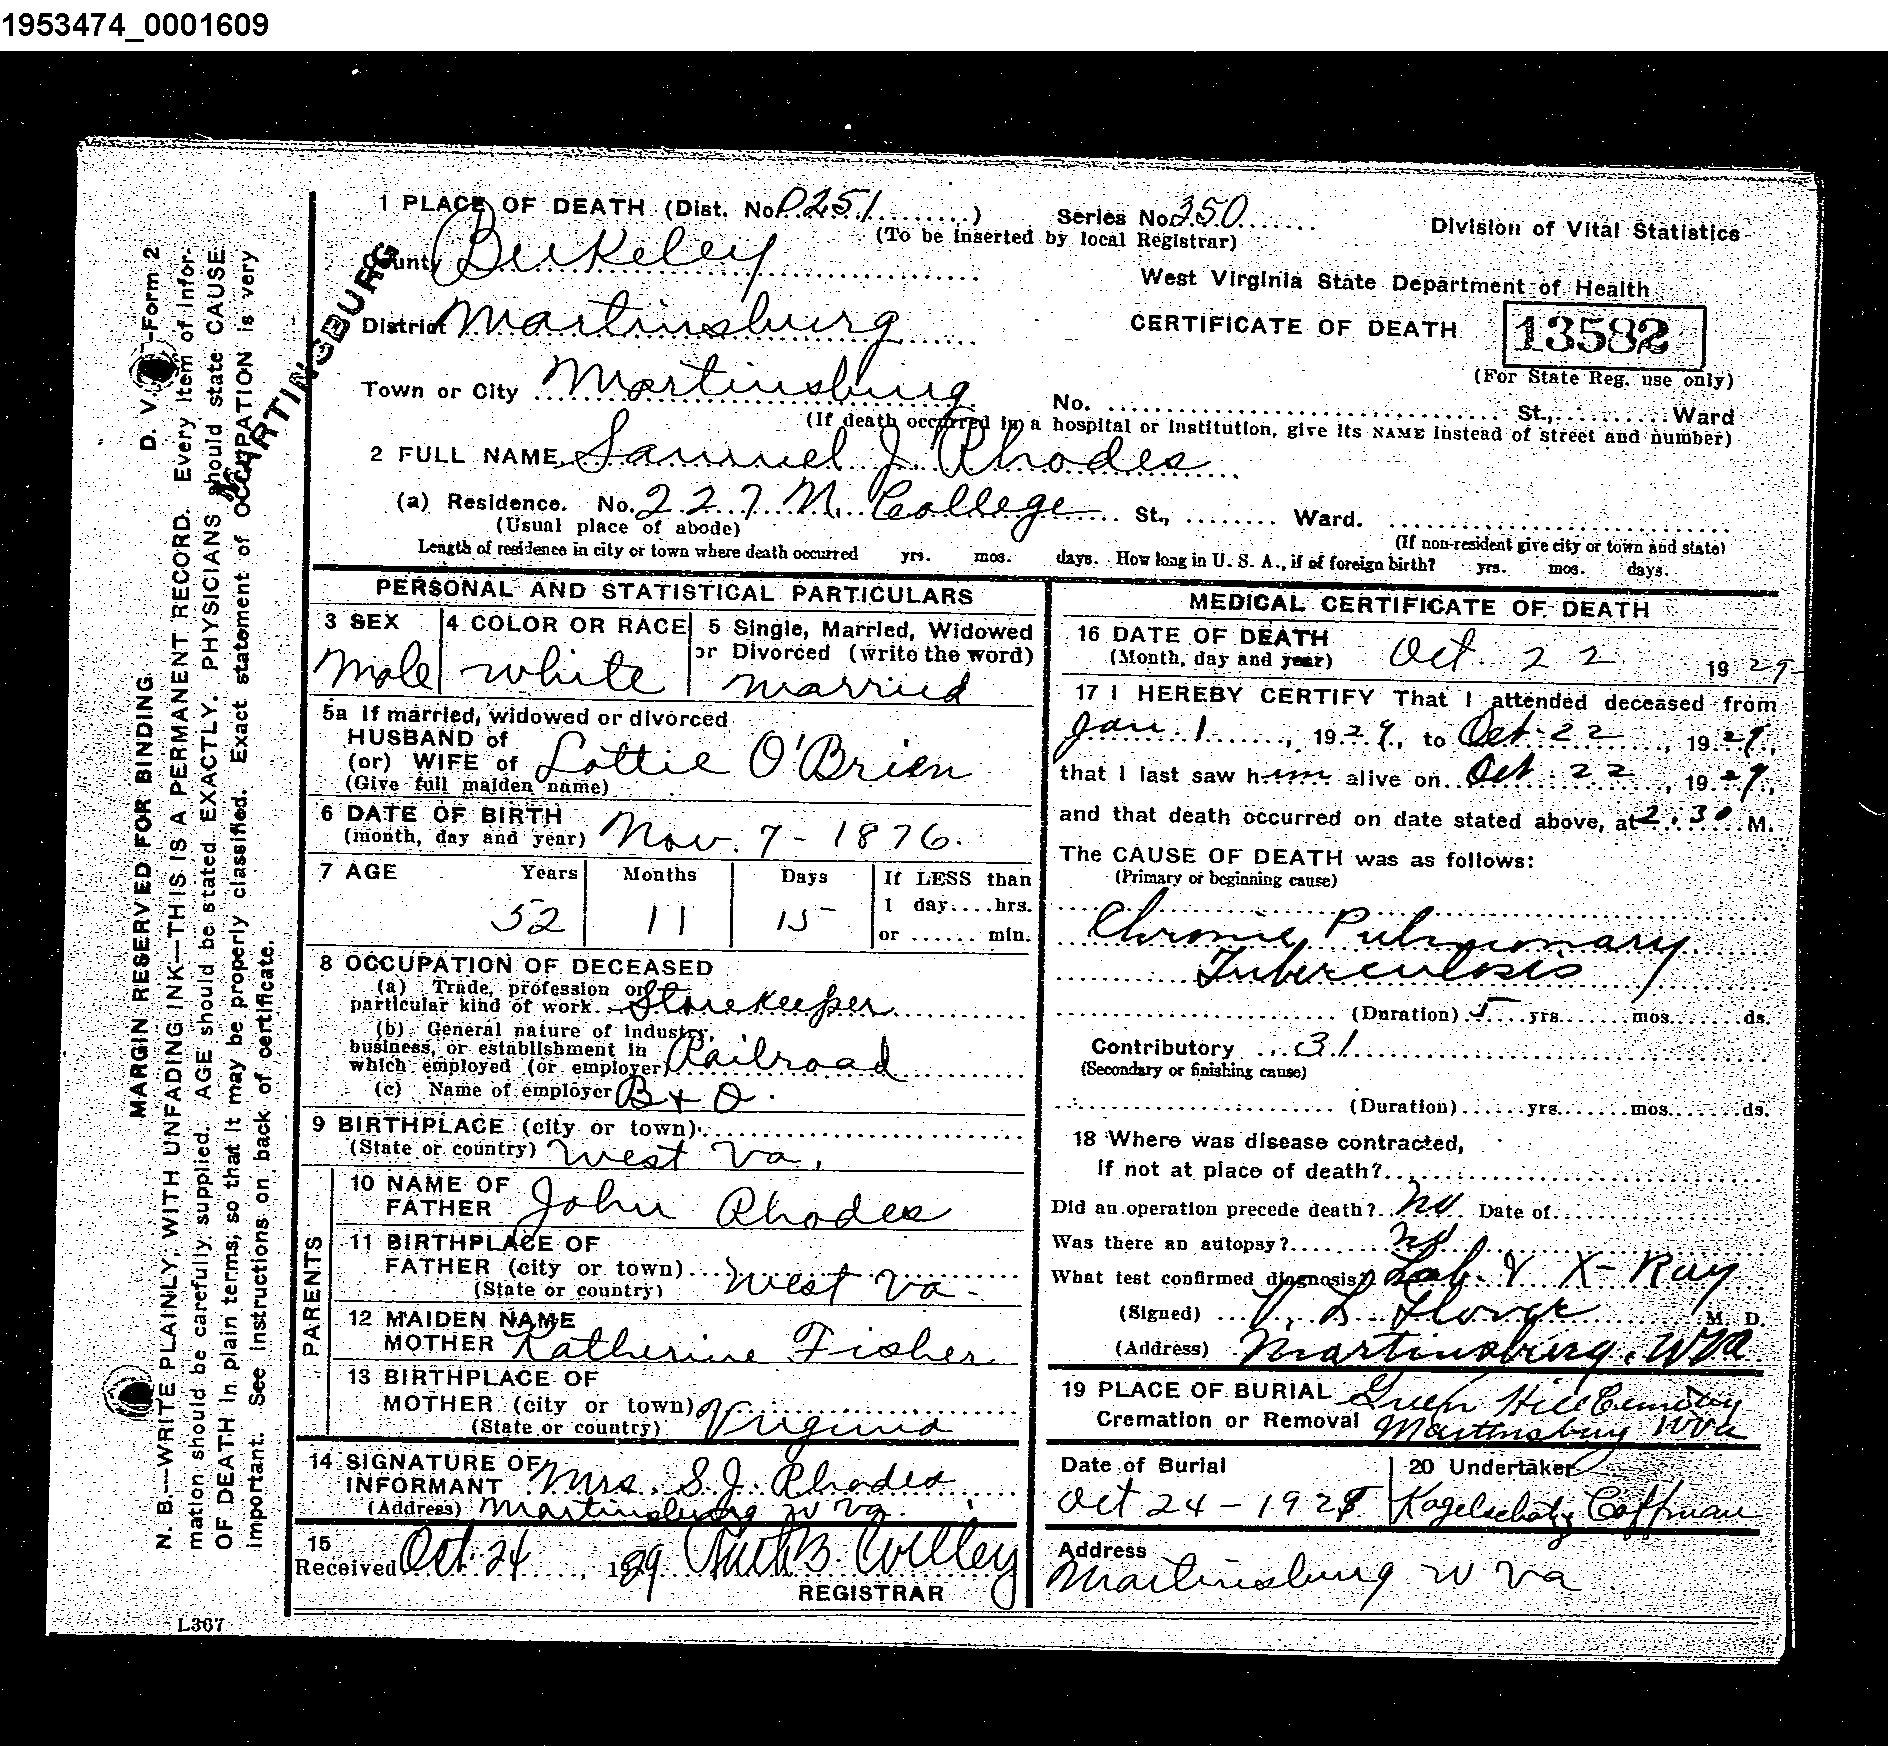 1953474_0001609
1 PLACE OF DEATH (Dist. No. 0251 ) Series No. 350
(To be inserted by local Registrar)
Division of Vital Statistics
County Berkeley
West Virginia State Department of Health
MARTINSBURG
District Martinsburg
CERTIFICATE OF DEATH 13582
(For State Reg. use only)
Town or City Martinsburg
No. St., Ward
(If death occurred in a hospital or institution, give its NAME instead of street and number)
2 FULL NAME Samuel J. Rhodes
(a) Residence. No. 227 N. College St., Ward.
(Usual place of abode) (If non-resident give city or town and state)
Length of residence in city or town where death occurred yrs. mos. days. How long in U. S. A., if of foreign birth? yrs. mos. days.
PERSONAL AND STATISTICAL PARTICULARS
3 SEX 4 COLOR OR RACE 5 Single, Married, Widowed
or Divorced (write the word)
Male White Married
5a If married, widowed or divorced
HUSBAND of
(or) WIFE of Lottie O'Brien
(Give full maiden name)
6 DATE OF BIRTH
(month, day and year) Nov. 7 - 1876.
7 AGE Years Months Days If LESS than
1 day....hrs.
52 11 15 or ...... min.
8 OCCUPATION OF DECEASED
(a) Trade, profession or
particular kind of work Storekeeper
(b) General nature of industry,
business, or establishment in
which employed (or employer) Railroad
(c) Name of employer B & O.
9 BIRTHPLACE (city or town)
(State or country) West Va.
PARENTS
10 NAME OF
FATHER John Rhodes
11 BIRTHPLACE OF
FATHER (city or town)
(State or country) West Va.
12 MAIDEN NAME
MOTHER Katherine Fisher
13 BIRTHPLACE OF
MOTHER (city or town)
(State or country) Virginia
14 SIGNATURE OF
INFORMANT Mrs. S. J. Rhodes
(Address) Martinsburg W Va.
15
Received Oct. 24, 1929 Ruth B. Willey
REGISTRAR
MEDICAL CERTIFICATE OF DEATH
16 DATE OF DEATH
(Month, day and year) Oct. 22 1929
17 I HEREBY CERTIFY That I attended deceased from
Jan 1, 1929, to Oct 22, 1929,
that I last saw him alive on Oct. 22, 1929,
and that death occurred on date stated above, at 2:30 M.
The CAUSE OF DEATH was as follows:
(Primary or beginning cause)
Chronic Pulmonary
Tuberculosis
(Duration) 5 yrs. mos. ds.
Contributory 31
(Secondary or finishing cause)
(Duration) yrs. mos. ds.
18 Where was disease contracted,
if not at place of death?
Did an operation precede death? No Date of
Was there an autopsy? No
What test confirmed diagnosis? Lab. & X-Ray
(Signed) L. Glover M. D.
(Address) Martinsburg, W Va
19 PLACE OF BURIAL Green Hill Cemetery
Cremation or Removal Martinsburg W Va
Date of Burial 20 Undertaker
Oct 24 - 1929 Kogelschatz Coffman
Address
Martinsburg W Va
D. V. S.-Form 2
MARGIN RESERVED FOR BINDING
N. B.—WRITE PLAINLY, WITH UNFADING INK—THIS IS A PERMANENT RECORD. Every item of infor-
mation should be carefully supplied. AGE should be stated EXACTLY. PHYSICIANS should state CAUSE
OF DEATH in plain terms, so that it may be properly classified. Exact statement of OCCUPATION is very
important. See instructions on back of certificate.
L367